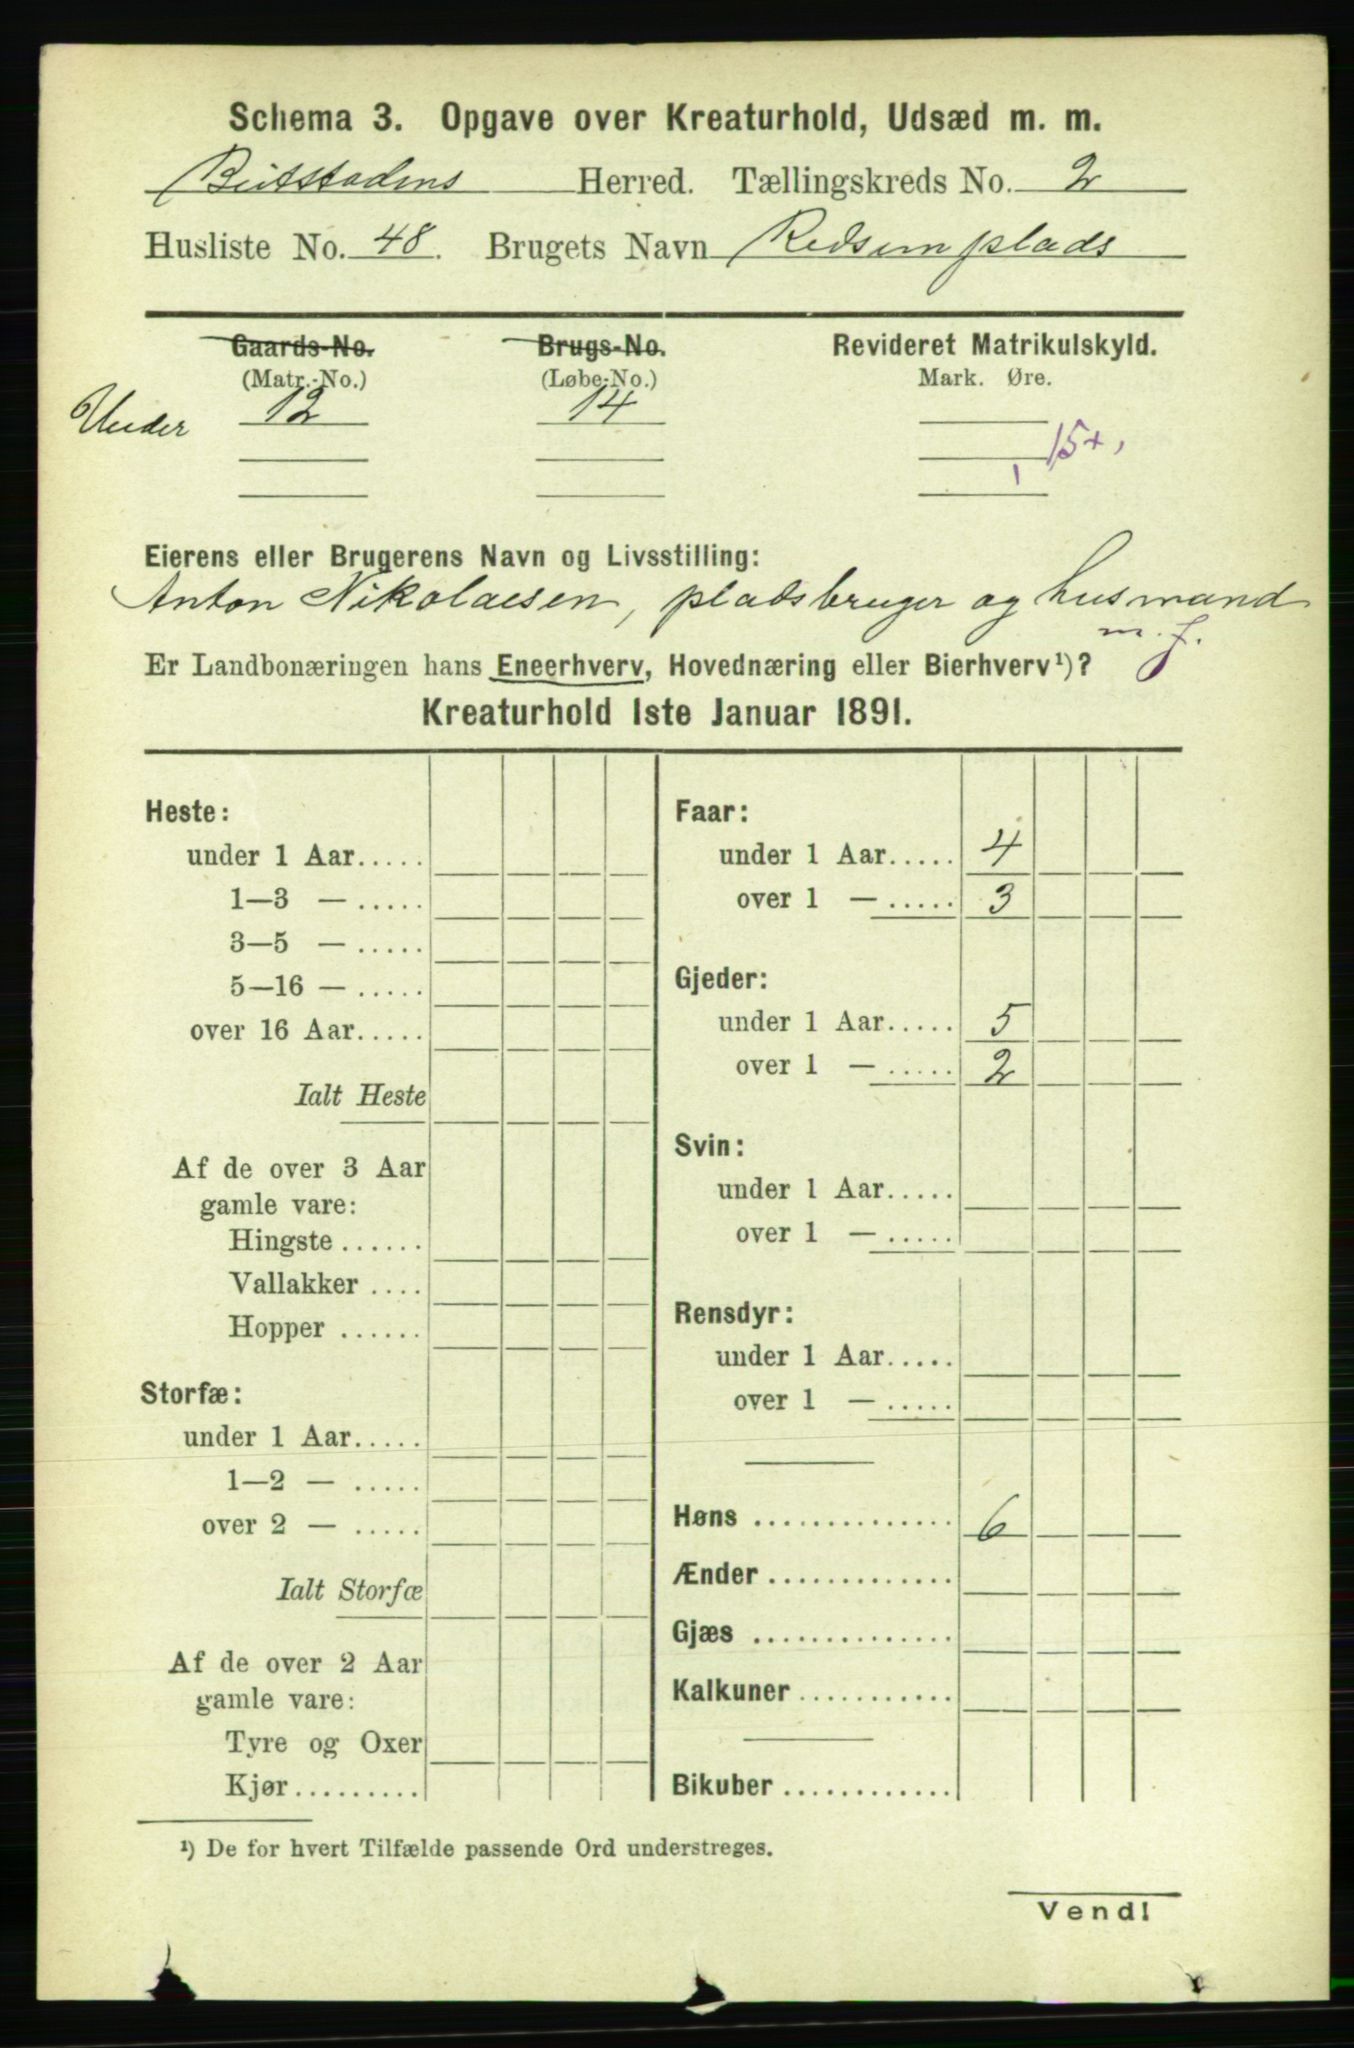 Schema 3. Opgave over Kreaturhold, Udsæd m. m.
Beitstadens Herred. Tællingskreds No. 2
Husliste No. 48. Brugets Navn Redsemplads
Gaards-No. Brugs-No. Revideret Matrikulskyld.
(Matr.-No.) (Løbe-No.) Mark. Øre.
Under 12 14
15+,
Eierens eller Brugerens Navn og Livsstilling:
Anton Nikolaisen, pladsbruger og husmand
m. j.
Er Landbonæringen hans Eneerhverv, Hovednæring eller Bierhverv¹)?
Kreaturhold 1ste Januar 1891.
Heste:
under 1 Aar.....
1—3 — .....
3—5 — .....
5—16 — .....
over 16 Aar.....
Ialt Heste
Af de over 3 Aar
gamle vare:
Hingste ......
Vallakker ....
Hopper ......
Storfæ:
under 1 Aar.....
1—2 — .....
over 2 — .....
Ialt Storfæ
Af de over 2 Aar
gamle vare:
Tyre og Oxer
Kjør.........
Faar:
under 1 Aar..... 4
over 1 — ..... 3
Gjeder:
under 1 Aar..... 5
over 1 — ..... 2
Svin:
under 1 Aar.....
over 1 — .....
Rensdyr:
under 1 Aar.....
over 1 — .....
Høns .............. 6
Ænder .............
Gjæs ..............
Kalkuner ...........
Bikuber ............
¹) De for hvert Tilfælde passende Ord understreges.
Vend!